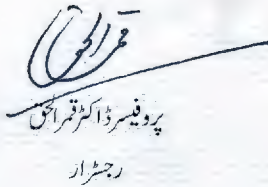 قمر الحق
پروفیسر ڈاکٹر قمر الحق
رجسٹرار